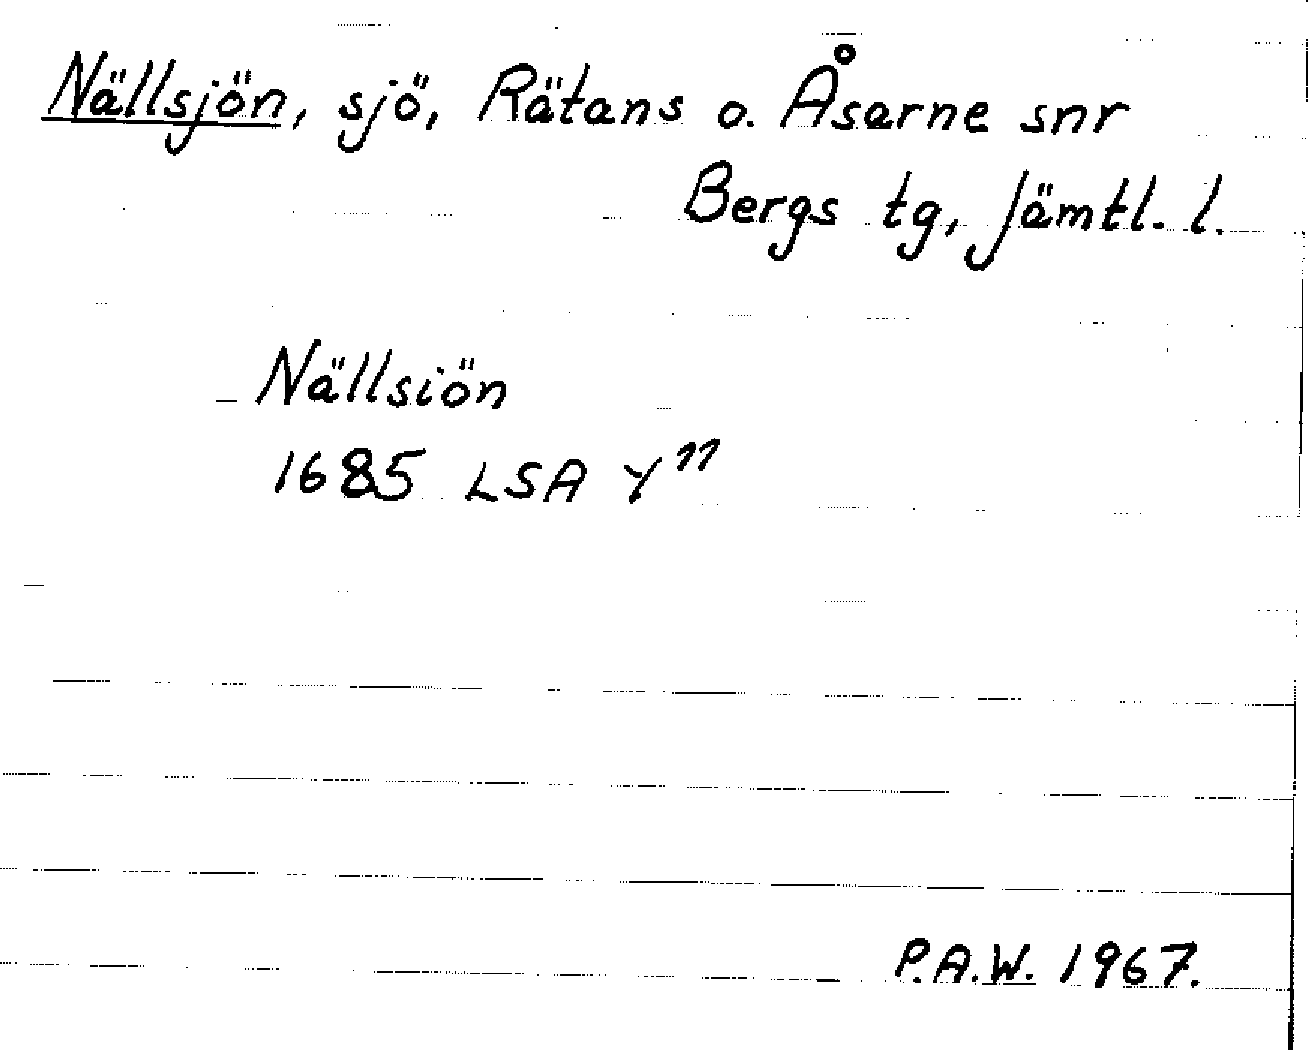 Nällsjön, sjö, Rätans o. Åsarne snr
Bergs tg, Jämtl. l.
Nällsiön
1685 LSA Y 11
P.A.W. 1967.